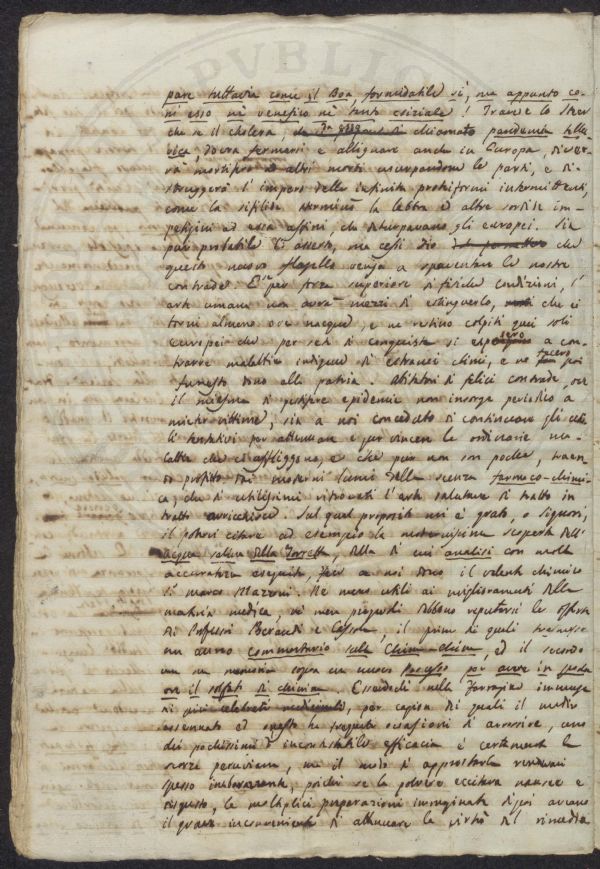 PVBLIC
pare tuttavia come il Boa, formidabile sì, ma appunto co-
m esso nè venefico nè tanto esiziale! Trarre lo
che se il cholera, chiamato pandemia
dovea fermarsi e allignare anche in Europa, diver-
rà mortifero altri morbi usurpandone le parti, e di-
struggerà l'impero delle infinite proteiformi intermittenti,
come la sifilide sterminò la lebbra ed altre sordide im-
petigini ad essa affini, che deturpavano gli europei. Sia
pur probabile l'asserto, ma cessi Dio che
questo nuovo flagello venga a spaventare le nostre
contrade! E se per forza superiore di fisiche condizioni, l'
arte umana non avrà mezzi di estinguerlo, che ei
torni almeno ove nacque, e ne restino colpiti quei soli
europei che per sete di conquista si esposero a con-
trarre malattie indigene di estranei climi, e ne fecero poi
funesto dono alla patria. Abitatori di felici contrade, ove
il miasma di pestifere epidemie non insorge periodico a
mieter vittime, sia a noi conceduto di continuare gli utili
tentativi per attenuare e per vincere le ordinarie ma-
lattie che ci affliggono, e che pur non son poche, traen-
do profitto dai moderni lumi della scienza farmaco-chimi-
ca, che di utilissimi ritrovati l'arte salutare di tratto in
tratto arricchisce. Sul qual proposito mi è grato, o signori,
il potervi citare ad esempio la modernissima scoperta dell'
acqua salina della Torretta, della di cui analisi con molta
accuratezza eseguita, fece a noi dono il valente chimico
Sig. Marco Mazzoni. Nè meno utili ai miglioramenti della
materia medica, nè men pregevoli debbono reputarsi le offerte
dei Professori Beraudi e Cassola, il primo dei quali trasmesse
un commentario sulla China-china, ed il secondo
una sua memoria sopra un nuovo Processo per avere in poche
ore il solfato di chinina. Essendochè nella farragine immensa
di più celebrati medicinali, per cagion dei quali il medico
assennato ed onesto ha frequenti occasioni di arrossire, uno
dei pochissimi d'incontrastabile efficacia è certamente la
scorza peruviana, ma il modo di approntarla rendevasi
spesso imbarazzante, poichè se la polvere eccitava nausee e
disgusto, le moltiplici preparazioni immaginate di poi aveano
il grave inconveniente di attenuare la virtù del rimedio